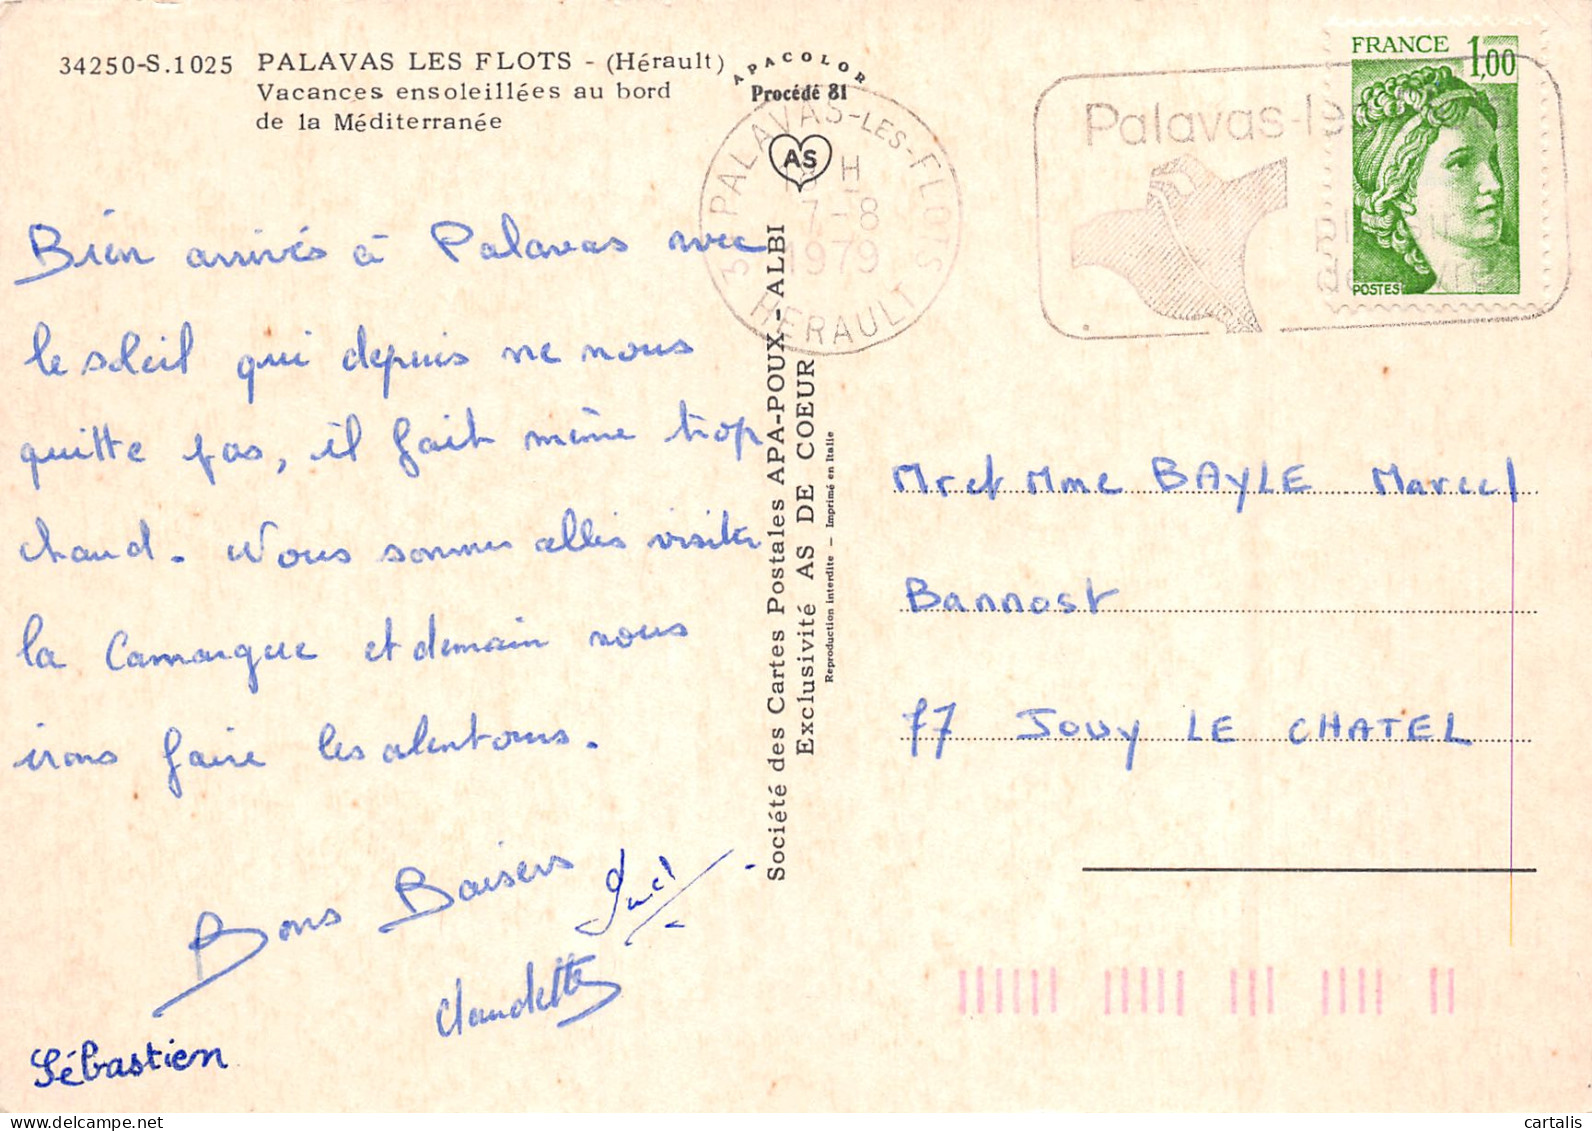 34250-S.1025 PALAVAS LES FLOTS - (Hérault)
Vacances ensoleillées au bord
de la Méditerranée
APACOLOR
Procédé 81
AS
34 PALAVAS-LES-FLOTS
18 H
7-8
1979
HERAULT
Palavas-le
plaisir
de vivre
FRANCE 1,00
POSTES
Bien arrivés à Palavas avec
le soleil qui depuis ne nous
quitte pas, il fait même trop
chaud. Nous sommes allés visiter
la Camargue et demain nous
irons faire les alentours.
Bons Baisers
Claudette
Sébastien
Société des Cartes Postales APA-POUX - ALBI
Exclusivité AS DE COEUR
Reproduction interdite - Imprimé en Italie
Mr et Mme BAYLE Marcel
Bannost
77 JOUY LE CHATEL
delcampe.net
cartalis